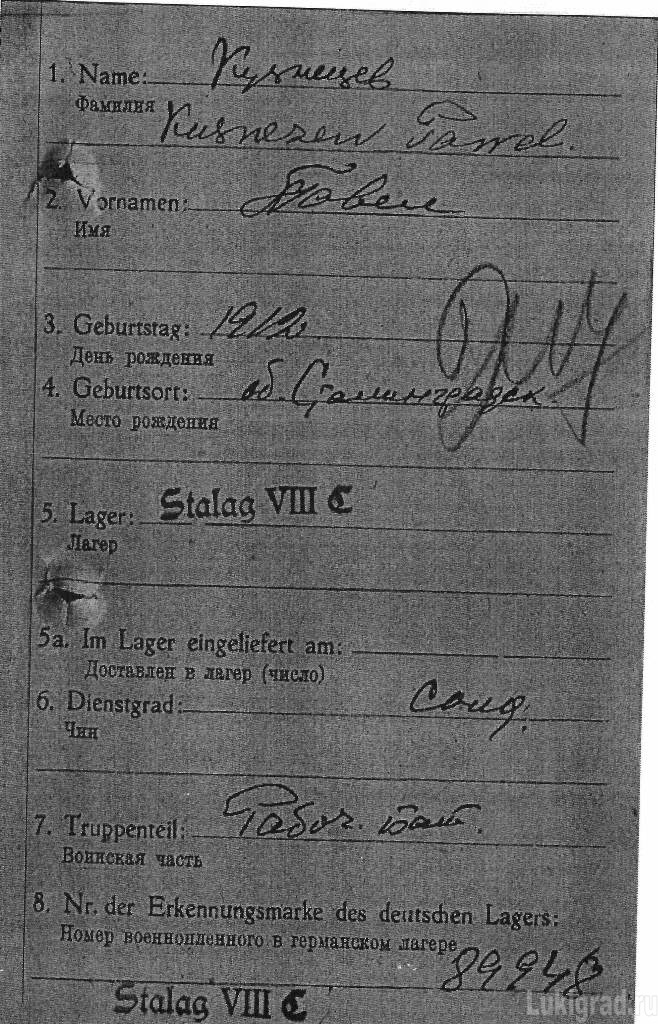 1. Name: Кузнецев
Фамилия
Kusnezew Pawel.
2. Vornamen: Павел
Имя
3. Geburtstag: 1912
День рождения
4. Geburtsort: об. Сталинградск
Место рождения
5. Lager: Stalag VIII C
Лагер
5a. Im Lager eingeliefert am:
Доставлен в лагер (число)
6. Dienstgrad: солд.
Чин
7. Truppenteil: Рабоч. бат.
Воинская часть
8. Nr. der Erkennungsmarke des deutschen Lagers:
Номер военнопленного в германском лагере
89948
Stalag VIII C
Lukigrad.ru